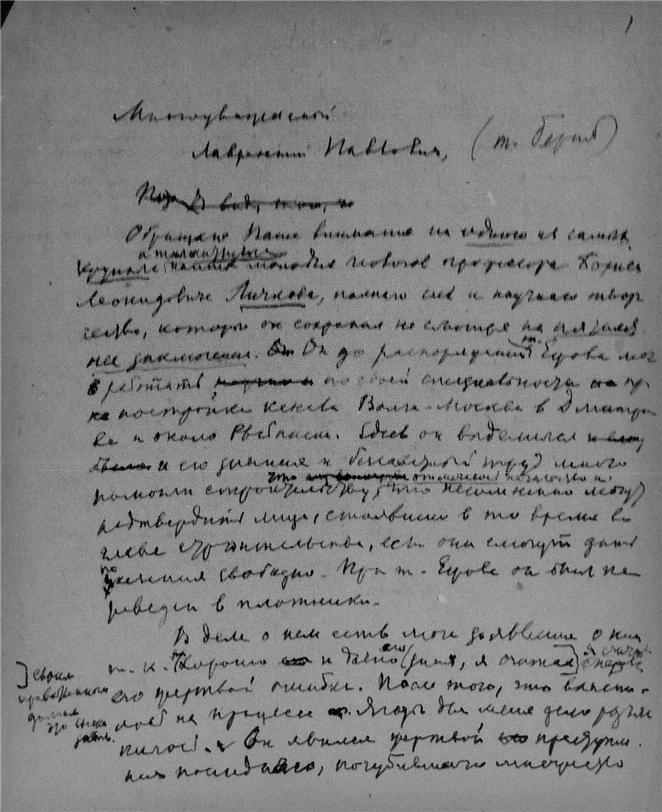 1
Многоуважаемый
Лаврентий Павлович, (т. Берия)
Обращаю Ваше внимание на одного из самых
и талантливых
крупных наших молодых геологов профессора Бориса
Леонидовича Личкова, полного сил и научного твор
чества, которые он сохранил не смотря на тяжелое
заключение. Он до распоряжений т. Ежова мог
работать по своей специальности пр
постройке канала Волга-Москва в Дмитро
ве и около Рыбинска. Здесь он выделился
и его знания и большой труд много
это отмечено
помогли строительству, что несомненно могут
подтвердить лица, стоявшие в то время во
главе строительства, если они смогут дать
показания свободно. При т. Ежове он был пе
реведен в плотники.
В деле о нем есть мое заявление о нем
т. к. хорошо и давно его зная, я считаю
его жертвой ошибки. После того, что выясни
лось на процессе Ягоды для меня дело разъяс
нилось. Он явился жертвой преступле
ния последнего, погубившего